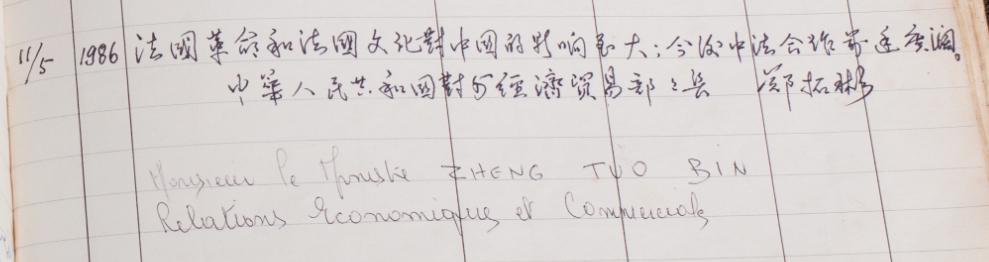 11/5 1986 法國革命和法國文化對中国的影响至大；今後中法合作前途广阔。
中華人民共和國對外經濟贸易部部長 郑拓彬
Monsieur le Ministre ZHENG TUO BIN
Relations Economiques et Commerciales